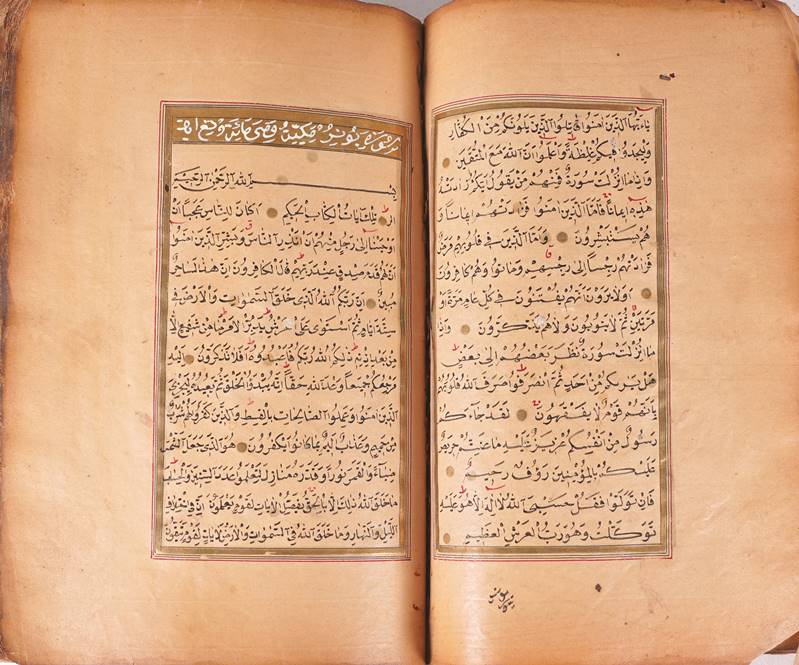 ياءيها الذين امنوا قاتلوا الذين يلونكم من الكفار
وليجدوا فيكم غلظة واعلموا ان الله مع المتقين
واذا ما انزلت سورة فمنهم من يقول ايكم زادته
هذه ايمانا فاما الذين امنوا فزادتهم ايمانا و
هم يستبشرون واما الذين في قلوبهم مرض
فزادتهم رجسا الى رجسهم وماتوا وهم كافرون
اولا يرون انهم يفتنون في كل عام مرة او
مرتين ثم لا يتوبون ولا هم يذكرون واذا
ما انزلت سورة نظر بعضهم الى بعض
هل يريكم من احد ثم انصرفوا صرف الله قلوبهم
بانهم قوم لا يفقهون لقد جاءكم
رسول من انفسكم عزيز عليه ما عنتم حريص
عليكم بالمؤمنين رؤف رحيم
فان تولوا فقل حسبي الله لا اله الا هو عليه
توكلت وهو رب العرش العظيم
سورة يونس مكية وهي مائة وتسع اية
بسم الله الرحمن الرحيم
الر تلك ايات الكتاب الحكيم اكان للناس عجبا ان
اوحينا الى رجل منهم ان انذر الناس وبشر الذين امنوا
ان لهم قدم صدق عند ربهم قال الكافرون ان هذا لساحر
مبين ان ربكم الله الذي خلق السموات والارض في
ستة ايام ثم استوى على العرش يدبر الامر ما من شفيع الا
من بعد اذنه ذلكم الله ربكم فاعبدوه افلا تذكرون اليه
مرجعكم جميعا وعد الله حقا انه يبدؤا الخلق ثم يعيده ليجزي
الذين امنوا وعملوا الصالحات بالقسط والذين كفروا لهم شراب
من حميم وعذاب اليم بما كانوا يكفرون هو الذي جعل الشمس
ضياء والقمر نورا وقدره منازل لتعلموا عدد السنين والحساب
ما خلق الله ذلك الا بالحق يفصل الايات لقوم يعلمون ان في اختلاف
الليل والنهار وما خلق الله في السموات والارض لايات لقوم يتقون